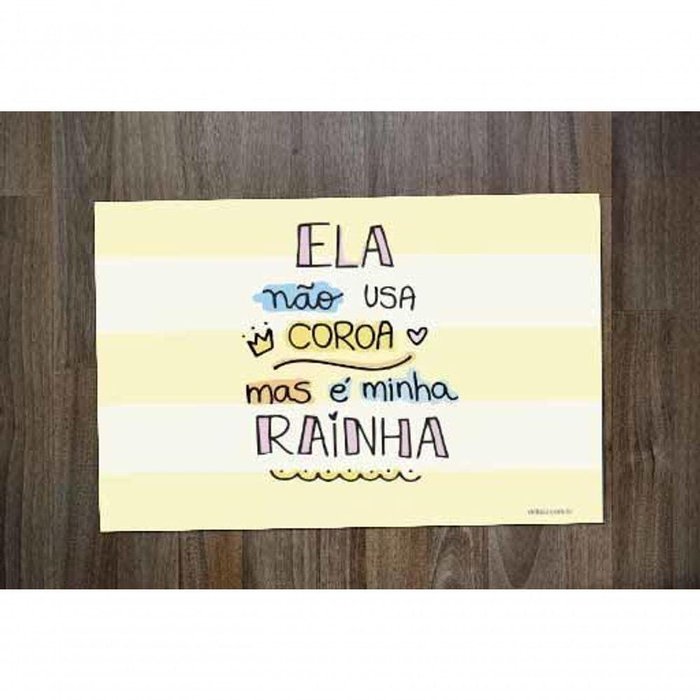 ELA
não USA
COROA
mas é minha
RAINHA